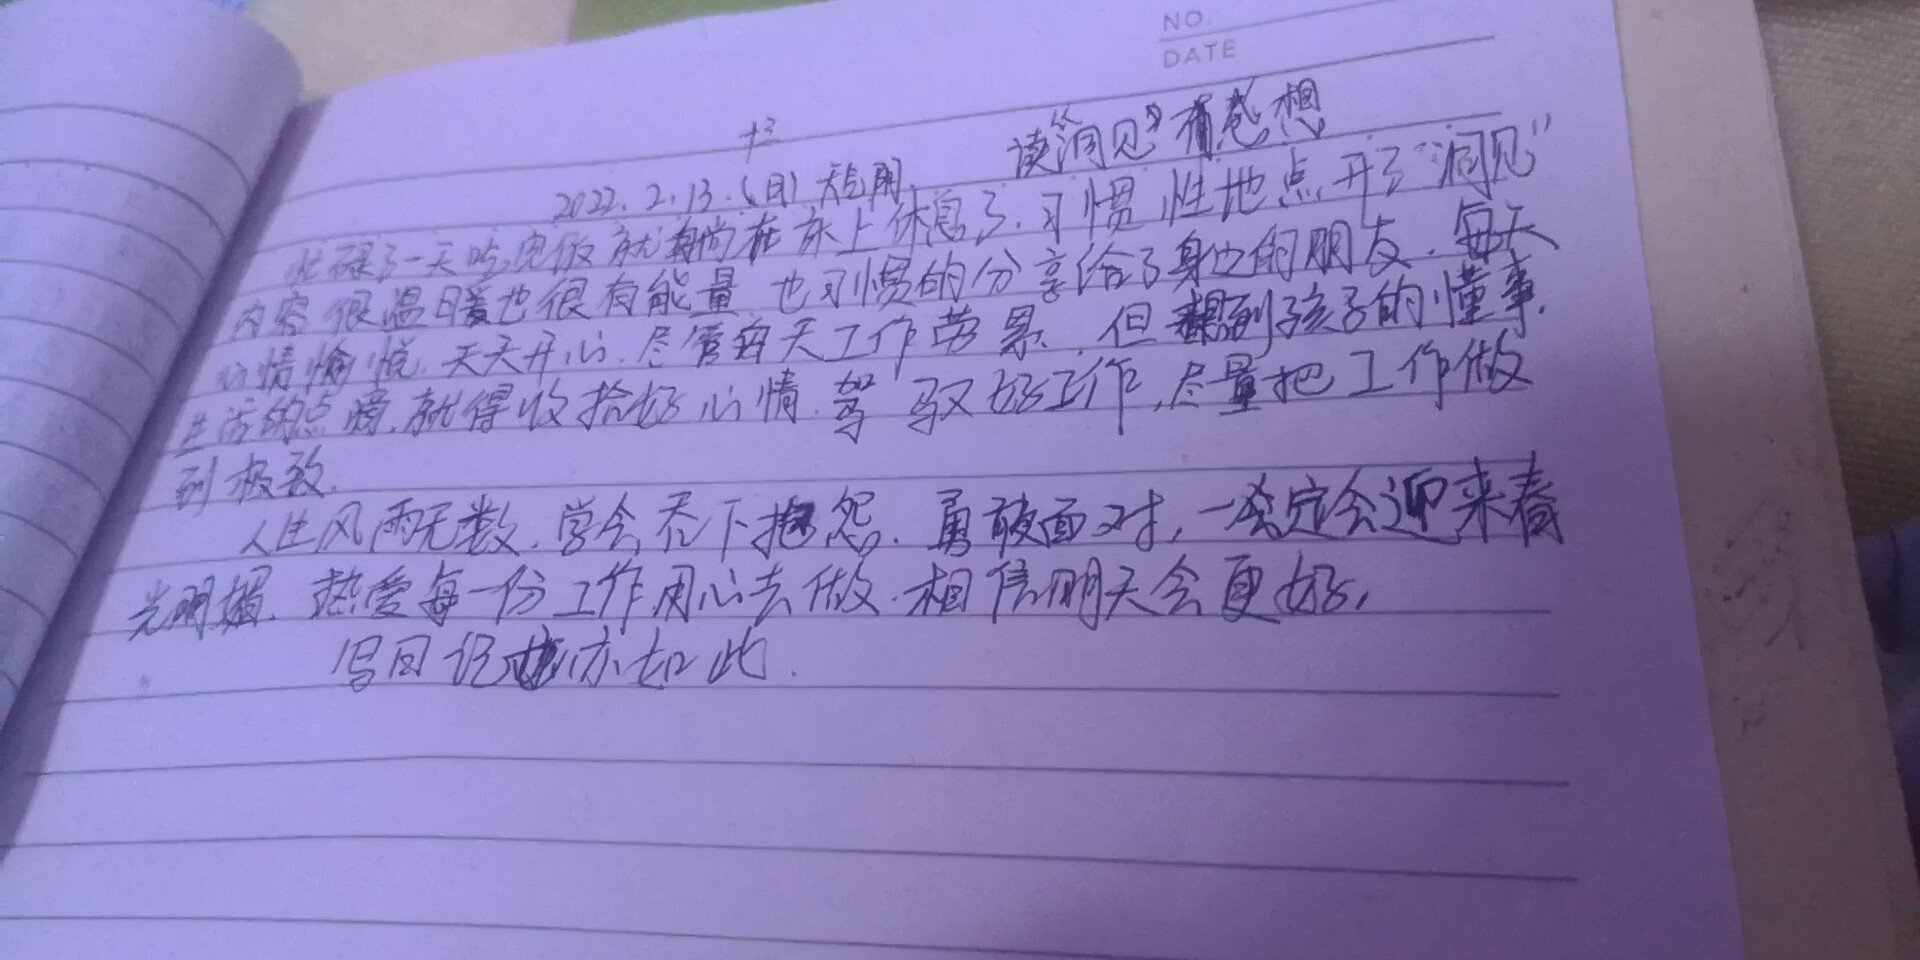 NO.
DATE
十三
2022.2.13.(日) 读“洞见”有感想
忙碌了一天吃完饭就躺在床上休息了.习惯性地点开了“洞见”
内容很温暖也很有能量.也习惯的分享给了身边的朋友.每天
心情愉悦.天天开心.尽管每天工作劳累.但想到孩子的懂事.
生活的点滴.就得收拾好心情.驾驭好工作,尽量把工作做
到极致.
人生风雨无数.学会吞下抱怨.勇敢面对,一定会迎来春
光明媚.热爱每一份工作用心去做.相信明天会更好,
写日记亦如此.